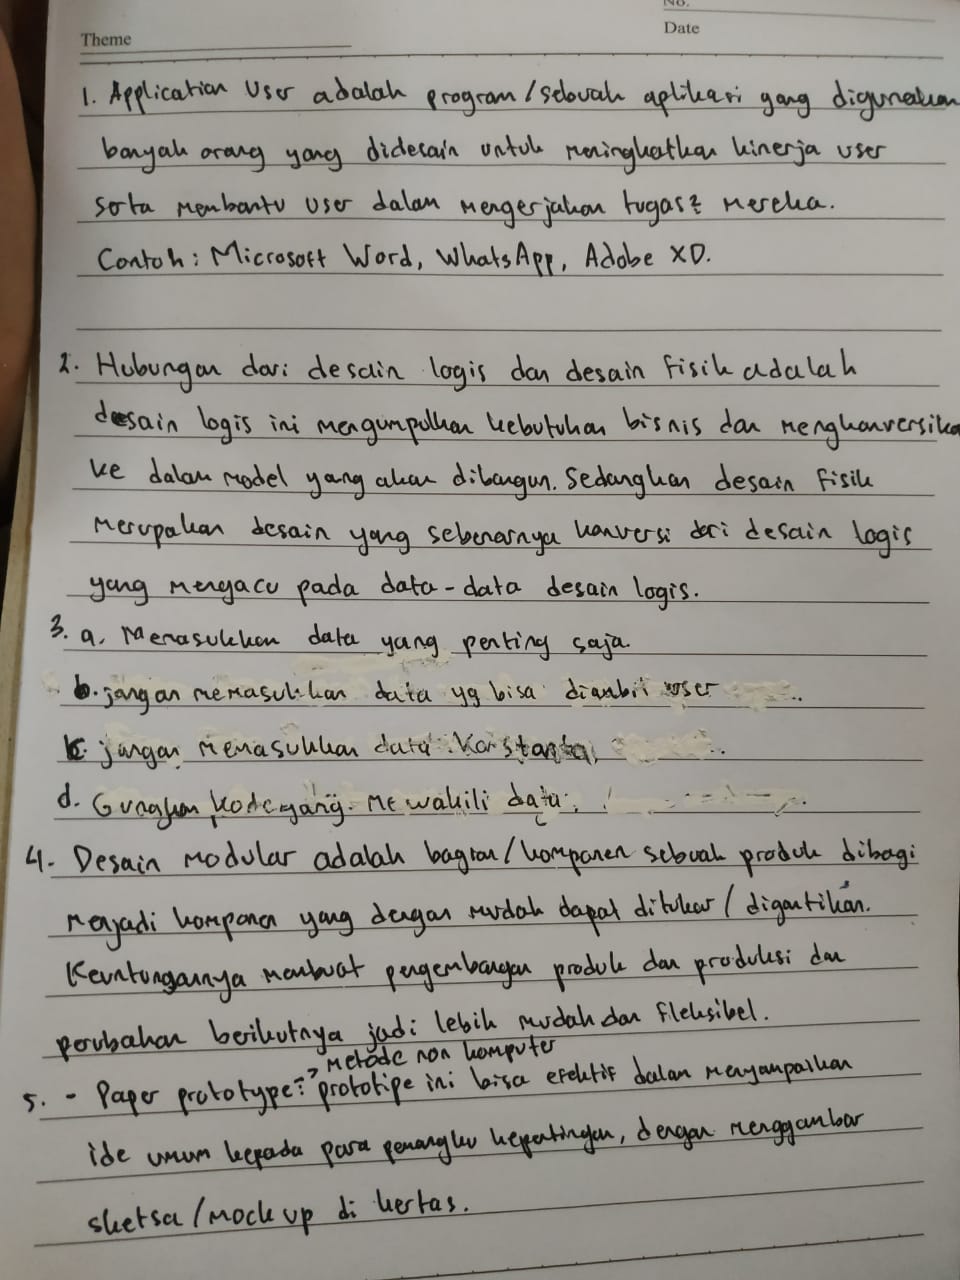 No.
Theme
Date
1. Application User adalah program/sebuah aplikasi yang digunakan
banyak orang yang didesain untuk meningkatkan kinerja user
serta membantu user dalam mengerjakan tugas2 mereka.
Contoh : Microsoft Word, WhatsApp, Adobe XD.
2. Hubungan dari desain logis dan desain fisik adalah
desain logis ini mengumpulkan kebutuhan bisnis dan mengkonversikan
ke dalam model yang akan dibangun. Sedangkan desain fisik
merupakan desain yang sebenarnya konversi dari desain logis
yang mengacu pada data-data desain logis.
3. a. Memasukkan data yang penting saja.
b. jangan memasukkan data yg bisa diambil user
c. jangan memasukkan data konstanta,
d. Gunakan kode yang mewakili data.
4. Desain modular adalah bagian/komponen sebuah produk dibagi
menjadi komponen yang dengan mudah dapat ditukar/digantikan.
Keuntungannya membuat pengembangan produk dan produksi dan
perubahan berikutnya jadi lebih mudah dan fleksibel.
→ metode non komputer
5. - Paper prototype : prototipe ini bisa efektif dalam menyampaikan
ide umum kepada para pemangku kepentingan, dengan menggambar
sketsa/mock up di kertas.